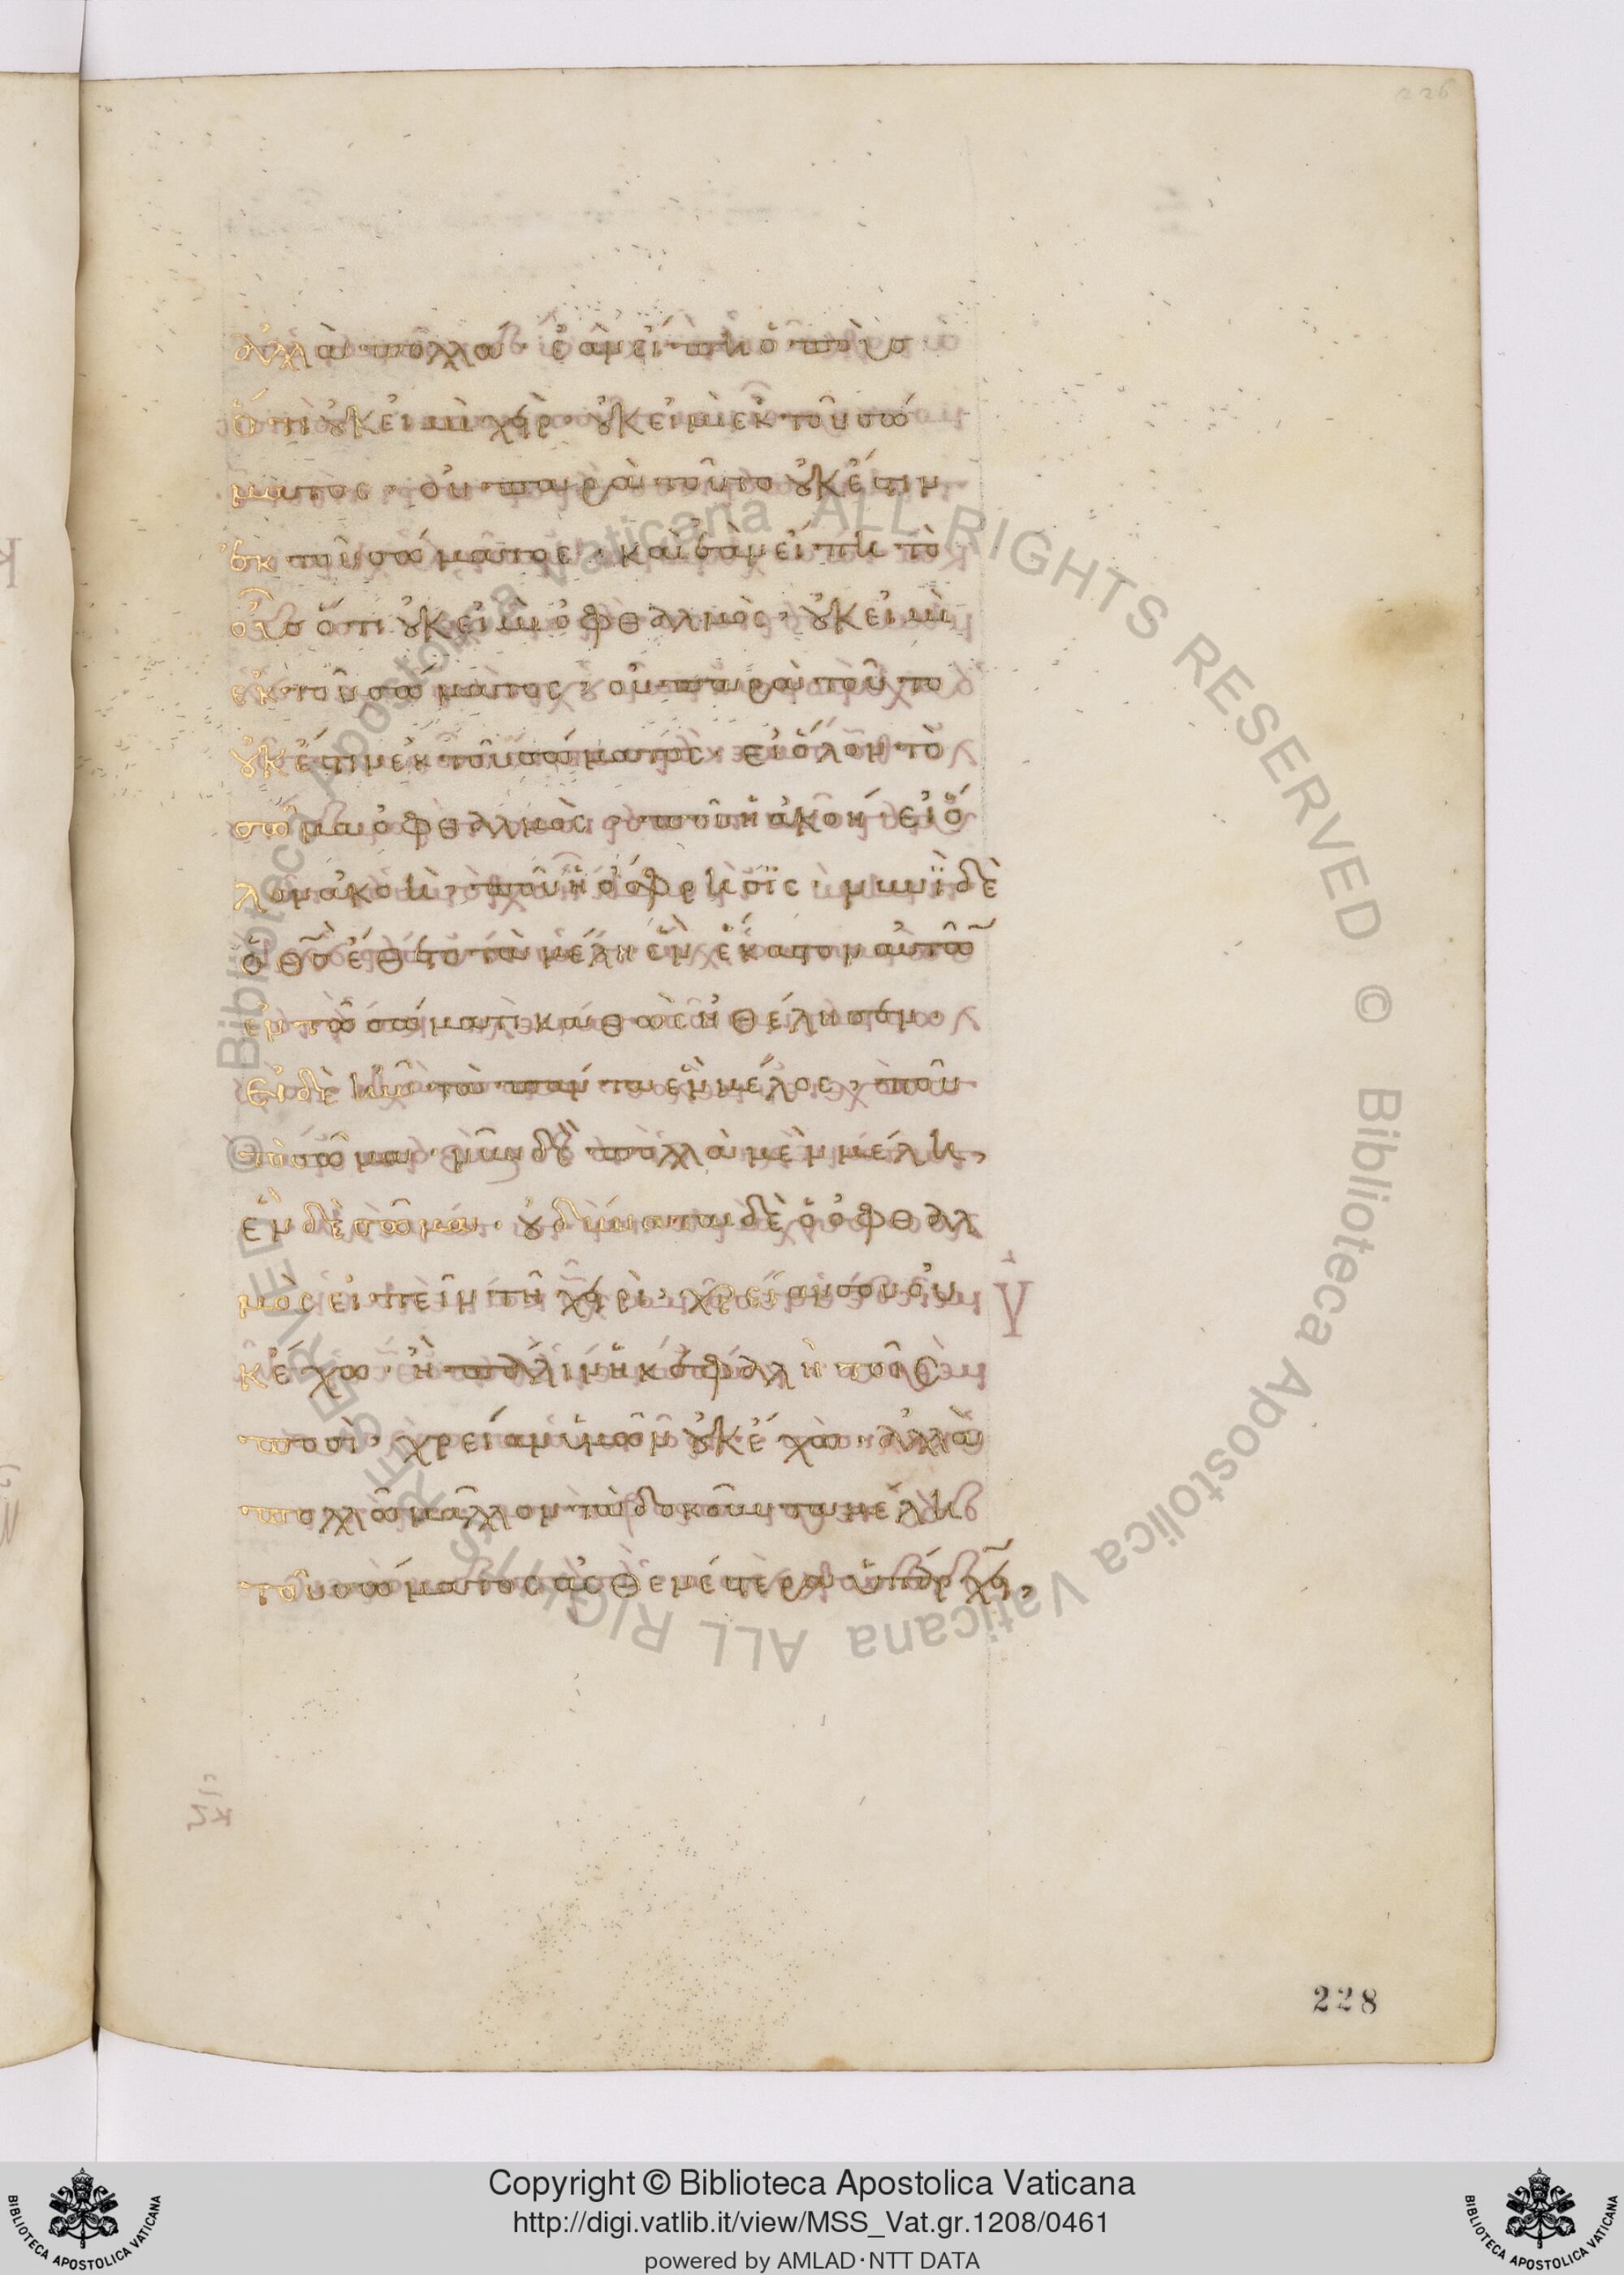 226
ἀλλὰ πολλά· ἐὰν εἴπη ὁ ποὺσ
ὅτι οὐκ εἰμὶ χεὶρ· οὐκ εἰμὶ ἐκ τοῦ σώ
ματος· οὐ παρὰ τοῦτο οὐκ ἔστιν
ἐκ τοῦ σώματος· καὶ ἐὰν εἴπη τὸ
οὖσ ὅτι οὐκ εἰμὶ ὀφθαλμὸς· οὐκ εἰμὶ
ἐκ τοῦ σώματος· οὐ παρὰ τοῦτο
οὐκ ἔστιν ἐκ τοῦ σώματος· εἰ ὅλον τὸ
σῶμα ὀφθαλμὸς· ποῦ ἡ ἀκοή· εἰ ὅ
λον ἀκοὴ· ποῦ ἡ ὄσφρησις· νυνὶ δὲ
ὁ θσ ἔθετο τὰ μέλη ἓν ἕκαστον αὐτῶ
ἐν τῶ σώματι καθὼς ἠθέλησεν·
εἰ δὲ ἦν τὰ πάντα ἓν μέλος· ποῦ
τὸ σῶμα· νῦν δὲ πολλὰ μὲν μέλη,
ἓν δὲ σῶμα· οὐ δύναται δὲ ὁ ὀφθαλ
μὸς εἰπεῖν τῆ χειρὶ· χρείαν σου οὐ
κ ἔχω· ἢ πάλιν ἡ κεφαλὴ τοῖς
ποσὶ· χρείαν ὑμῶν οὐκ ἔχω· ἀλλὰ
πολλῶ μᾶλλον τὰ δοκοῦντα μέλη
τοῦ σώματος ἀσθενέστερα ὑπάρχειν,
228
© Biblioteca Apostolica Vaticana ALL RIGHTS RESERVED © Biblioteca Apostolica Vaticana ALL RIGHTS RESERVED
Copyright © Biblioteca Apostolica Vaticana
http://digi.vatlib.it/view/MSS_Vat.gr.1208/0461
powered by AMLAD·NTT DATA
BIBLIOTECA APOSTOLICA VATICANA
BIBLIOTECA APOSTOLICA VATICANA